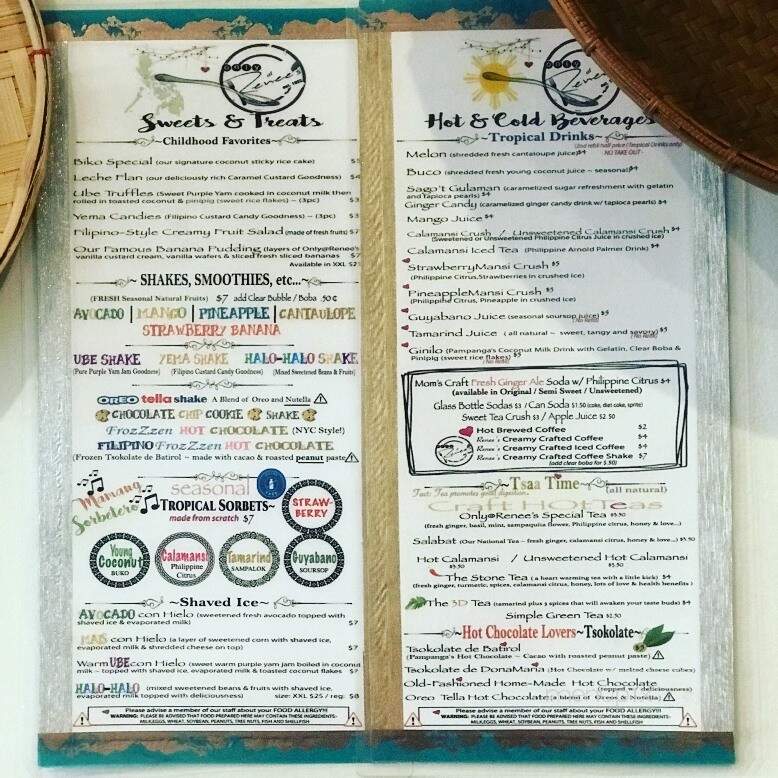 only @ Renee's
Sweets & Treats
~Childhood Favorites~
Biko Special (our signature coconut sticky rice cake)
Leche Flan (our deliciously rich Caramel Custard Goodness) $4
Ube Truffles (Sweet Purple Yam cooked in coconut milk then
rolled in toasted coconut & pinipig (sweet rice flakes) ~ (3pc) $3
Yema Candies (Filipino Custard Candy Goodness) ~ (3pc) $3
Filipino-Style Creamy Fruit Salad (made of fresh fruits) $7
Our Famous Banana Pudding (layers of Only@Renee's
vanilla custard cream, vanilla wafers & sliced fresh sliced bananas $7
Available in XXL $21
~ SHAKES, SMOOTHIES, etc...~
(FRESH Seasonal Natural Fruits) $7 add Clear Bubble / Boba .50¢
AVOCADO | MANGO | PINEAPPLE | CANTAULOPE
STRAWBERRY BANANA
UBE SHAKE YEMA SHAKE HALO-HALO SHAKE
(Pure Purple Yam Jam Goodness) (Filipino Custard Candy Goodness) (Mixed Sweetened Beans & Fruits)
OREO tella shake A Blend of Oreo and Nutella
CHOCOLATE CHIP COOKIE SHAKE
FrozZzen HOT CHOCOLATE (NYC Style!)
FILIPINO FrozZzen HOT CHOCOLATE
(Frozen Tsokolate de Batirol ~ made with cacao & roasted peanut paste)
Manang Sorbetero
seasonal
TROPICAL SORBETS~
made from scratch $7
STRAW-
BERRY
Young Coconut BUKO
Calamansi Philippine Citrus
Tamarind SAMPALOK
Guyabano SOURSOP
~Shaved Ice~
AVOCADO con Hielo (sweetened fresh avocado topped with
shaved ice & evaporated milk) $7
MAIS con Hielo (a layer of sweetened corn with shaved ice,
evaporated milk & shredded cheese on top) $7
Warm UBE con Hielo (sweet warm purple yam jam boiled in coconut
milk ~ topped with shaved ice, evaporated milk & toasted coconut flakes $7
HALO-HALO (mixed sweetened beans & fruits with shaved ice,
evaporated milk topped with deliciousness) size: XXL $25 / reg: $8
Please advise a member of our staff about your FOOD ALLERGY!!!
WARNING: PLEASE BE ADVISED THAT FOOD PREPARED HERE MAY CONTAIN THESE INGREDIENTS:
MILK,EGGS, WHEAT, SOYBEAN, PEANUTS, TREE NUTS, FISH AND SHELLFISH
only @ Renee's
Hot & Cold Beverages
~Tropical Drinks~
(2nd refill half price (Tropical Drinks only)
NO TAKE OUT
Melon (shredded fresh cantaloupe juice) $4
Buco (shredded fresh young coconut juice ~ seasonal) $4
Sago't Gulaman (caramelized sugar refreshment with gelatin
and Tapioca pearls) $4
Ginger Candy (caramelized ginger candy drink w/ tapioca pearls) $4
Mango Juice $4
Calamansi Crush / Unsweetened Calamansi Crush $4
(Sweetened or Unsweetened Philippine Citrus Juice in crushed ice)
Calamansi Iced Tea (Philippine Arnold Palmer Drink) $4
StrawberryMansi Crush $5
(Philippine Citrus,Strawberries in crushed ice)
PineappleMansi Crush $5
(Philippine Citrus, Pineapple in crushed ice)
Guyabano Juice (seasonal soursop juice) $5
(No Refill)
Tamarind Juice ( all natural ~ sweet, tangy and savory) $5
(No Refill)
Ginilo (Pampanga's Coconut Milk Drink with Gelatin, Clear Boba &
Pinipig (sweet rice flakes) $5
(No Refill)
Mom's Craft Fresh Ginger Ale Soda w/ Philippine Citrus $4
(available in Original / Semi Sweet / Unsweetened)
Glass Bottle Sodas $3 / Can Soda $1.50 (coke, diet coke, sprite)
Sweet Tea Crush $3 / Apple Juice $2.50
Hot Brewed Coffee $2
Renee's Creamy Crafted Coffee $4
Renee's Creamy Crafted Iced Coffee $4
Renee's Creamy Crafted Coffee Shake $7
(add clear boba for $.50)
~Tsaa Time~ (all natural)
Fact: Tea promotes good digestion..
Craft HOT Teas
Only@Renee's Special Tea $3.50
(fresh ginger, basil, mint, sampaquita flower, Philippine citrus, honey & love...)
Salabat (Our National Tea ~ fresh ginger, calamansi citrus, honey & love...) $3.50
Hot Calamansi / Unsweetened Hot Calamansi
$3.50 $3.50
The Stone Tea ( a heart warming tea with a little kick) $4
(fresh ginger, turmeric, spices, calamansi citrus, honey, lots of love & health benefits )
The 5D Tea (tamarind plus 5 spices that will awaken your taste buds) $4
Simple Green Tea $2.50
~Hot Chocolate Lovers~Tsokolate~
Tsokolate de Batirol
(Pampanga's Hot Chocolate ~ Cacao with roasted peanut paste)
Tsokolate de DonaMaria (Hot Chocolate w/ melted cheese cubes)
Old-Fashioned Home-Made Hot Chocolate
(topped w/ deliciousness)
Oreo Tella Hot Chocolate (a blend of Oreos & Nutella)
Please advise a member of our staff about your FOOD ALLERGY!!!
WARNING: PLEASE BE ADVISED THAT FOOD PREPARED HERE MAY CONTAIN THESE INGREDIENTS:
MILK,EGGS, WHEAT, SOYBEAN, PEANUTS, TREE NUTS, FISH AND SHELLFISH